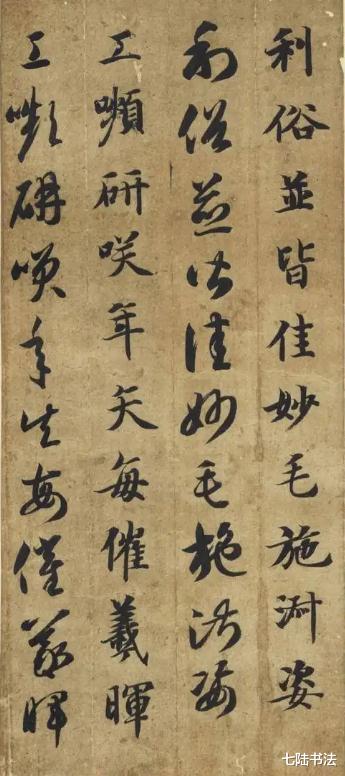 利俗並皆佳妙毛施淑姿
利俗並皆佳妙毛施淑姿
工嚬研咲年矢每催羲暉
工嚬研咲年矢每催羲暉
七陆书法